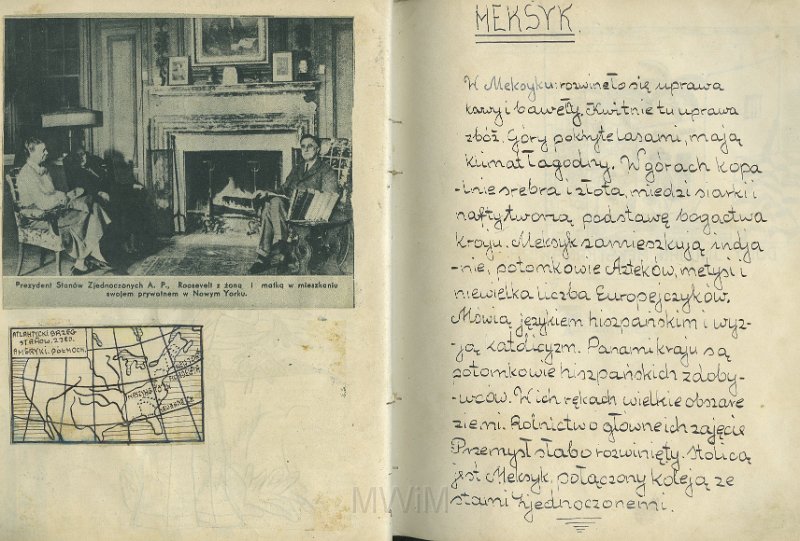 Prezydent Stanów Zjednoczonych A. P., Roosevelt z żoną i matką w mieszkaniu
swojem prywatnem w Nowym Yorku.
ATLANTYCKI BRZEG
STANÓW. ZJED.
AMERYKI. PÓŁNOCN.
MEKSYK.
W Meksyku: rozwinęło się uprawa
kawy i baweły. Kwitnie tu uprawa
zbóż. Góry pokryte lasami, mają
klimat łagodny. W górach kopa
-lnie srebra i złota, miedzi siarki i
nafty tworzą podstawę bogactwa
kraju. Meksyk zamieszkują indja
-nie, potomkowie Azteków, metysi i
niewielka liczba Europejczyków.
Mówią językiem hiszpańskim i wyz-
-ją katolicyzm. Panami kraju są
potomkowie hiszpańskich zdoby-
-wców. W ich rękach wielkie obszare
ziemi. Rolnictwo główne ich zajęcie
Przemysł słabo rozwinięty. Stolicą
jest Meksyk, połączony koleją ze
stami Zjednoczonemi.
MWiM